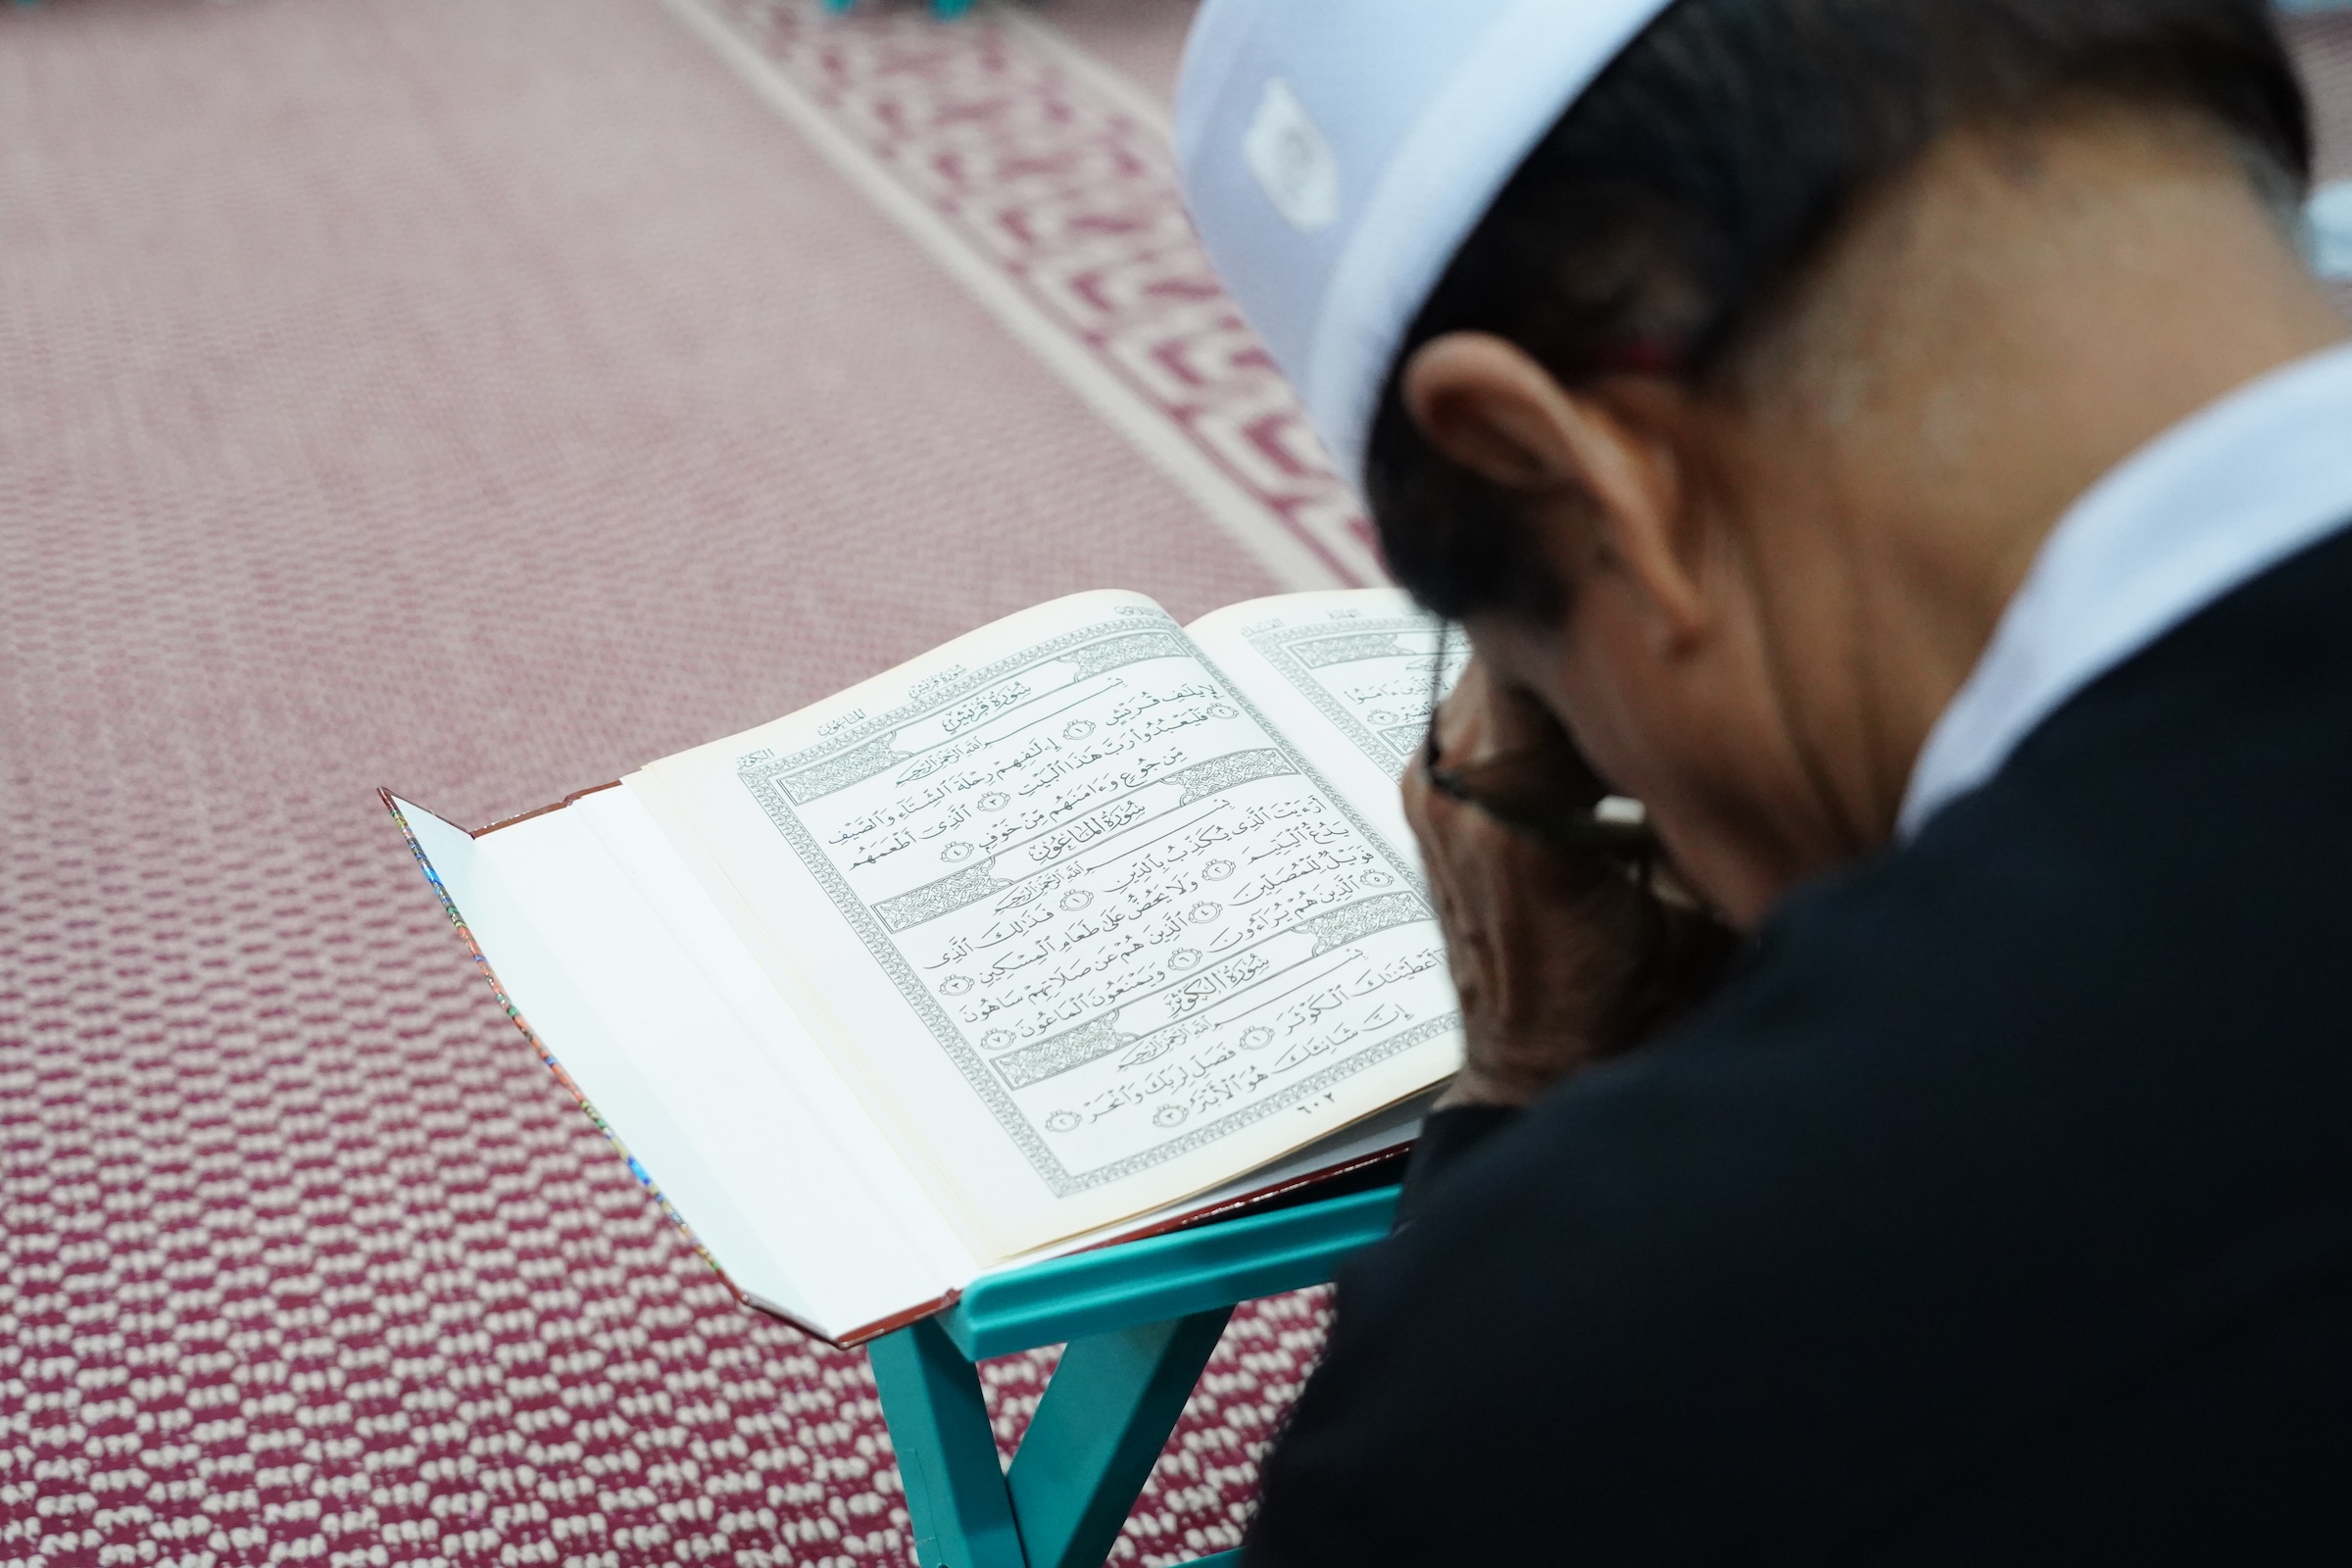 الكوثر الماعون سورة قريش
سُورَةُ قُرَيْشٍ
بِسْمِ ٱللَّهِ ٱلرَّحْمَٰنِ ٱلرَّحِيمِ
لِإِيلَٰفِ قُرَيْشٍ ١ إِۦلَٰفِهِمْ رِحْلَةَ ٱلشِّتَآءِ وَٱلصَّيْفِ
٢ فَلْيَعْبُدُوا۟ رَبَّ هَٰذَا ٱلْبَيْتِ ٣ ٱلَّذِىٓ أَطْعَمَهُم
مِّن جُوعٍ وَءَامَنَهُم مِّنْ خَوْفٍۭ ٤
سُورَةُ الْمَاعُونِ
بِسْمِ ٱللَّهِ ٱلرَّحْمَٰنِ ٱلرَّحِيمِ
أَرَءَيْتَ ٱلَّذِى يُكَذِّبُ بِٱلدِّينِ ١ فَذَٰلِكَ ٱلَّذِى
يَدُعُّ ٱلْيَتِيمَ ٢ وَلَا يَحُضُّ عَلَىٰ طَعَامِ ٱلْمِسْكِينِ ٣
فَوَيْلٌ لِّلْمُصَلِّينَ ٤ ٱلَّذِينَ هُمْ عَن صَلَاتِهِمْ سَاهُونَ
٥ ٱلَّذِينَ هُمْ يُرَآءُونَ ٦ وَيَمْنَعُونَ ٱلْمَاعُونَ ٧
سُورَةُ الْكَوْثَرِ
بِسْمِ ٱللَّهِ ٱلرَّحْمَٰنِ ٱلرَّحِيمِ
أَعْطَيْنَٰكَ ٱلْكَوْثَرَ ١ فَصَلِّ لِرَبِّكَ وَٱنْحَرْ ٢
إِنَّ شَانِئَكَ هُوَ ٱلْأَبْتَرُ ٣
٦٠٢